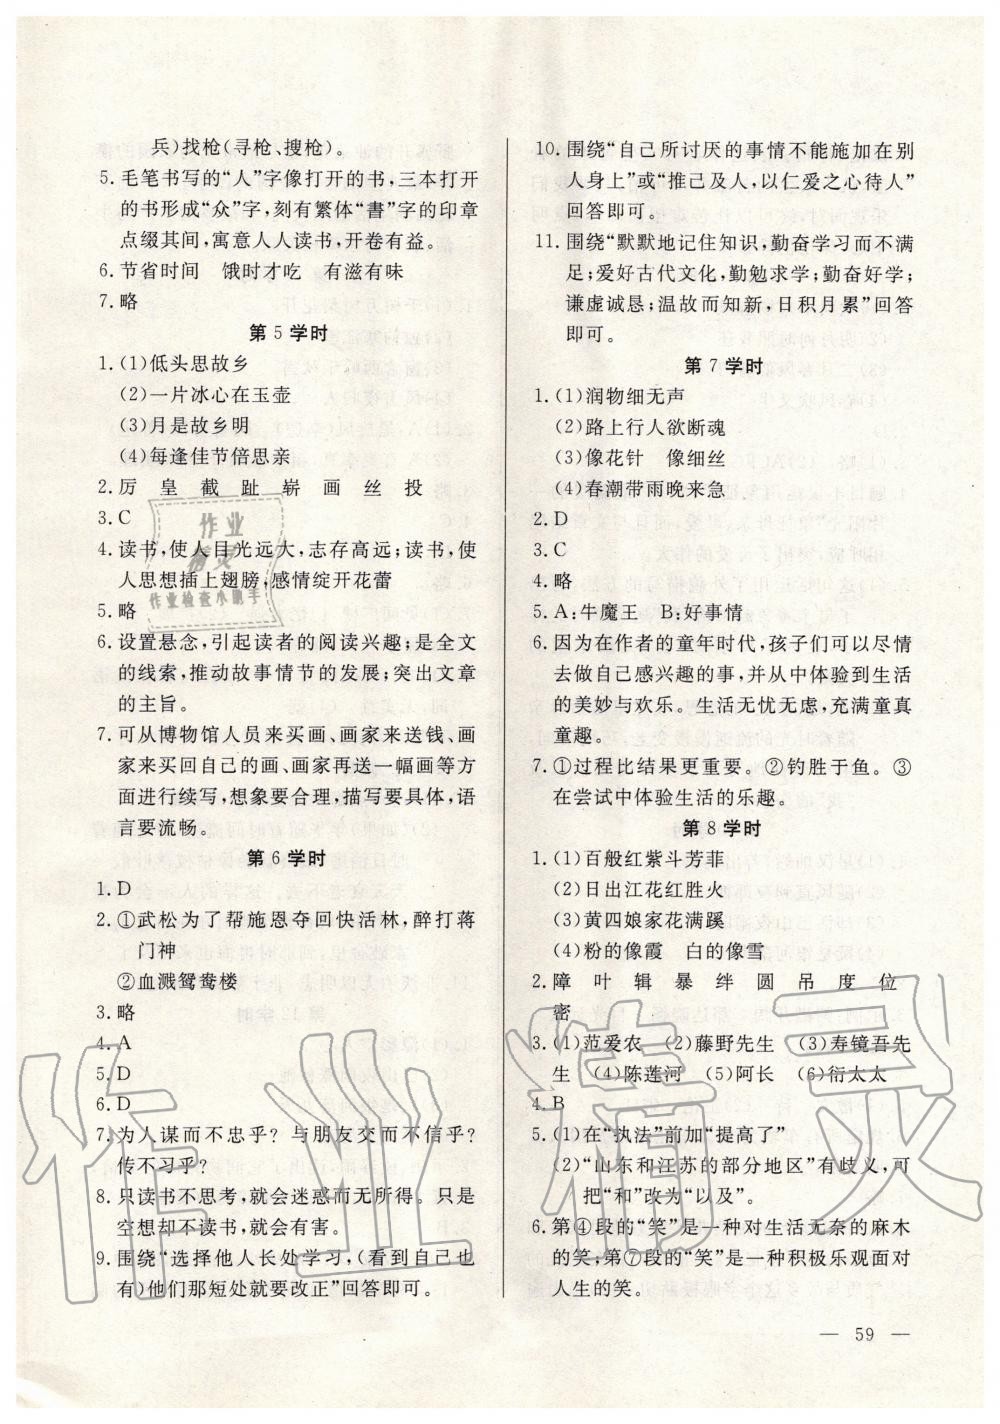 兵)找枪(寻枪、搜枪)。
5. 毛笔书写的“人”字像打开的书,三本打开
的书形成“众”字,刻有繁体“書”字的印章
点缀其间,寓意人人读书,开卷有益。
6. 节省时间 饿时才吃 有滋有味
7. 略
第 5 学时
1. (1)低头思故乡
(2)一片冰心在玉壶
(3)月是故乡明
(4)每逢佳节倍思亲
2. 厉 皇 截 趾 崭 画 丝 投
3. C
4. 读书,使人目光远大,志存高远;读书,使
人思想插上翅膀,感情绽开花蕾
5. 略
6. 设置悬念,引起读者的阅读兴趣;是全文
的线索,推动故事情节的发展;突出文章
的主旨。
7. 可从博物馆人员来买画、画家来送钱、画
家来要回自己的画、画家再送一幅画等方
面进行续写,想象要合理,描写要具体,语
言要流畅。
第 6 学时
1. D
2. ①武松为了帮施恩夺回快活林,醉打蒋
门神
②血溅鸳鸯楼
3. 略
4. A
5. D
6. D
7. 为人谋而不忠乎? 与朋友交而不信乎?
传不习乎?
8. 只读书不思考,就会迷惑而无所得。只是
空想却不读书,就会有害。
9. 围绕“选择他人长处学习,(看到自己也
有)他们那短处就要改正”回答即可。
10. 围绕“自己所讨厌的事情不能施加在别
人身上”或“推己及人,以仁爱之心待人”
回答即可。
11. 围绕“默默地记住知识,勤奋学习而不满
足;爱好古代文化,勤勉求学;勤奋好学;
谦虚诚恳;温故而知新,日积月累”回答
即可。
第 7 学时
1. (1)润物细无声
(2)路上行人欲断魂
(3)像花针 像细丝
(4)春潮带雨晚来急
2. D
3. C
4. 略
5. A:牛魔王 B:好事情
6. 因为在作者的童年时代,孩子们可以尽情
去做自己感兴趣的事,并从中体验到生活
的美妙与欢乐。生活无忧无虑,充满童真
童趣。
7. ①过程比结果更重要。②钓胜于鱼。③
在尝试中体验生活的乐趣。
第 8 学时
1. (1)百般红紫斗芳菲
(2)日出江花红胜火
(3)黄四娘家花满蹊
(4)粉的像霞 白的像雪
2. 障 叶 辑 暴 绊 圆 吊 度 位
密
3. (1)范爱农 (2)藤野先生 (3)寿镜吾先
生 (4)陈莲河 (5)阿长 (6)衍太太
4. B
5. (1)在“执法”前加“提高了”
(2)“山东和江苏的部分地区”有歧义,可
把“和”改为“以及”。
6. 第④段的“笑”是一种对生活无奈的麻木
的笑,第⑦段的“笑”是一种积极乐观面对
人生的笑。
— 59 —
作业
精灵
作业检查小助手
作业精灵